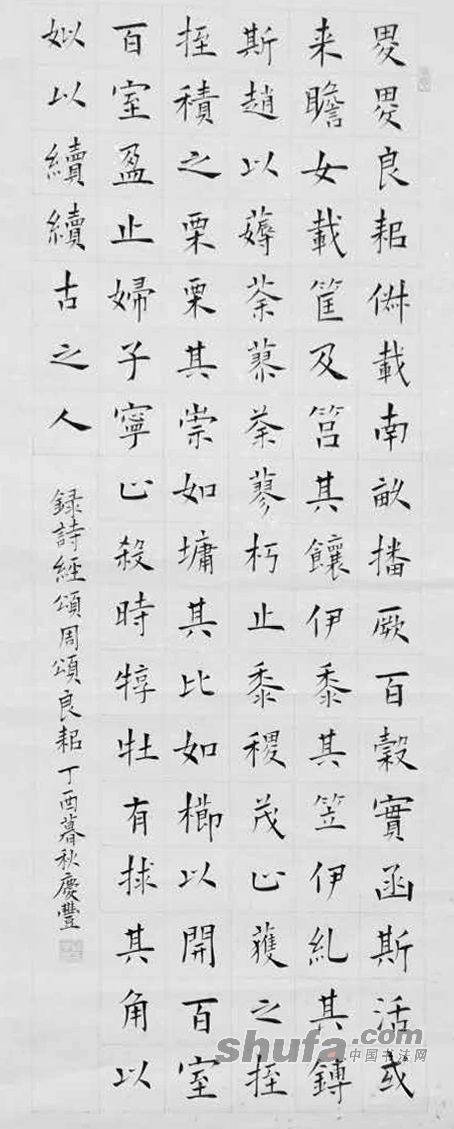 畟畟良耜俶載南畝播厥百穀實函斯活或
来瞻女載筐及筥其饟伊黍其笠伊糺其鎛
斯趙以薅荼蓼荼蓼朽止黍稷茂止穫之挃
挃積之栗栗其崇如墉其比如櫛以開百室
百室盈止婦子寧止殺時犉牡有捄其角以
姒以續續古之人
録詩經頌周頌良耜丁酉暮秋慶豐
shufa.com
中国书法网